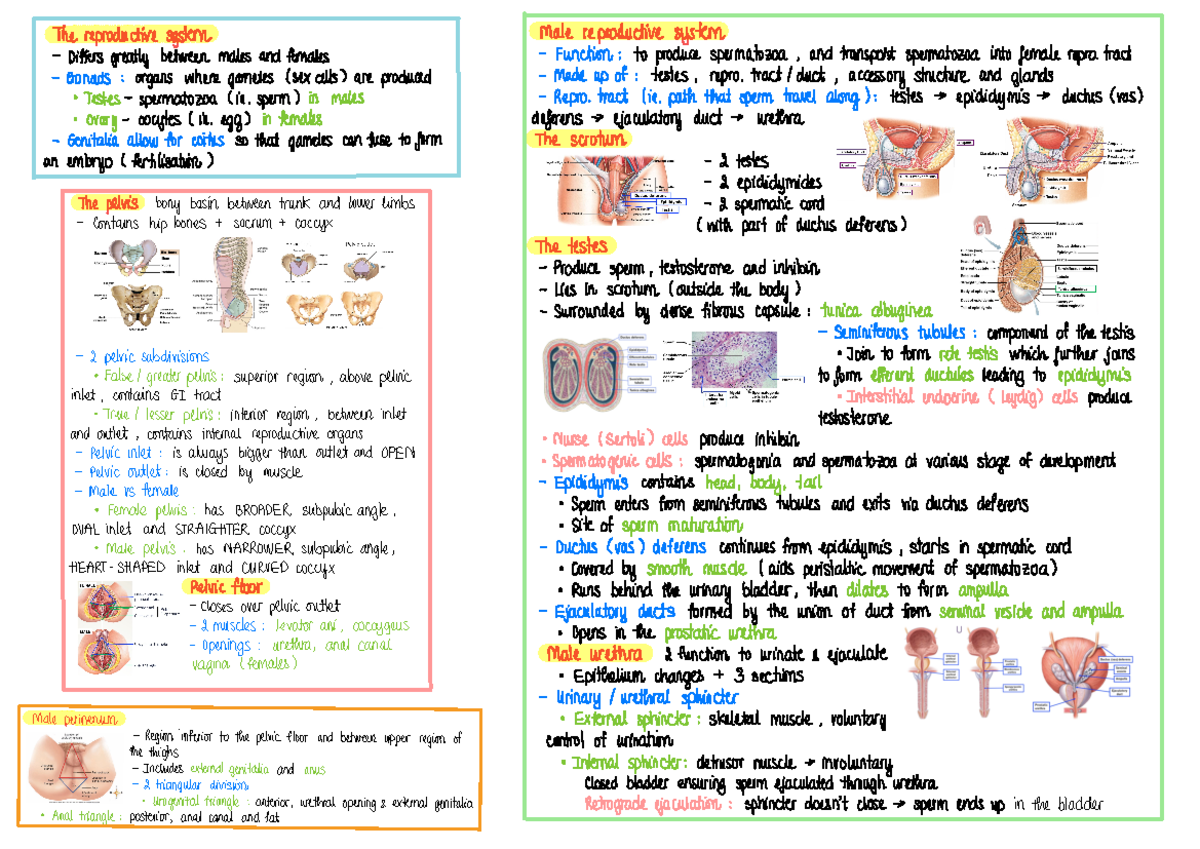 The reproductive system
- Differs greatly between males and females
- Gonads : organs where gametes (sex cells) are produced
• Testes - spermatozoa (ie. sperm) in males
• Ovary - oocytes (ie. egg) in females
- Genitalia allow for coitus so that gametes can fuse to form
an embryo (fertilisation)
The pelvis bony basin between trunk and lower limbs
- Contains hip bones + sacrum + coccyx
- 2 pelvic subdivisions
• False / greater pelvis : superior region , above pelvic
inlet , contains GI tract
• True / lesser pelvis : inferior region , between inlet
and outlet , contains internal reproductive organs
- Pelvic inlet : is always bigger than outlet and OPEN
- Pelvic outlet : is closed by muscle
- Male vs female
• Female pelvis : has BROADER subpubic angle ,
OVAL inlet and STRAIGHTER coccyx
• Male pelvis : has NARROWER subpubic angle ,
HEART-SHAPED inlet and CURVED coccyx
Pelvic floor
- Closes over pelvic outlet
- 2 muscles : levator ani , coccygeus
- Openings : urethra, anal canal
vagina (females)
Male perineum
- Region inferior to the pelvic floor and between upper region of
the thighs
- Includes external genitalia and anus
- 2 triangular division
• Urogenital triangle : anterior, urethral opening & external genitalia
• Anal triangle : posterior, anal canal and fat
Male reproductive system
- Function : to produce spermatozoa , and transport spermatozoa into female repro. tract
- Made up of : testes , repro. tract / duct , accessory structure and glands
- Repro. tract (ie. path that sperm travel along) : testes → epididymis → ductus (vas)
deferens → ejaculatory duct → urethra
The scrotum
- 2 testes
- 2 epididymides
- 2 spermatic cord
(with part of ductus deferens)
The testes
- Produce sperm , testosterone and inhibin
- Lies in scrotum (outside the body)
- Surrounded by dense fibrous capsule : tunica albuginea
- Seminiferous tubules : component of the testis
• Join to form rete testis which further joins
to form efferent ductules leading to epididymis
• Interstitial endocrine (Leydig) cells produce
testosterone
• Nurse (Sertoli) cells produce inhibin
• Spermatogenic cells : spermatogonia and spermatozoa at various stage of development
- Epididymis contains head, body, tail
• Sperm enters from seminiferous tubules and exits via ductus deferens
• Site of sperm maturation
- Ductus (vas) deferens continues from epididymis , starts in spermatic cord
• Covered by smooth muscle (aids peristaltic movement of spermatozoa)
• Runs behind the urinary bladder, then dilates to form ampulla
- Ejaculatory ducts formed by the union of duct from seminal vesicle and ampulla
• Opens in the prostatic urethra
Male urethra 2 function to urinate & ejaculate
• Epithelium changes + 3 sections
- Urinary / urethral sphincter
• External sphincter : skeletal muscle , voluntary
control of urination
• Internal sphincter : detrusor muscle → involuntary
Closed bladder ensuring sperm ejaculated through urethra
Retrograde ejaculation : sphincter doesn't close → sperm ends up in the bladder